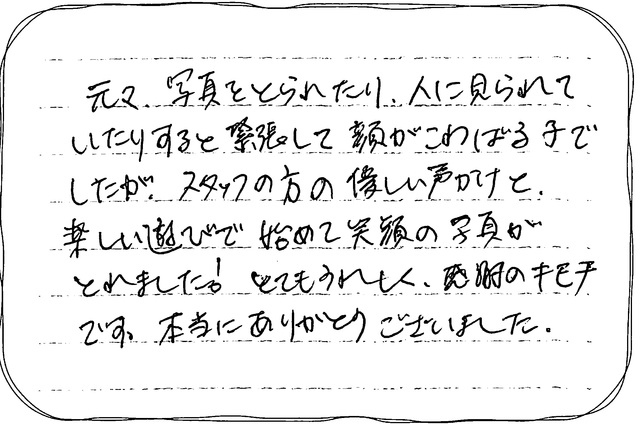 元々、写真をとられたり、人に見られて
いたりすると緊張して顔がこわばる子で
したが、スタッフの方の優しい声かけと、
楽しい遊びで始めて笑顔の写真が
とれました!とてもうれしく、感謝のキモチ
です。本当にありがとうございました。